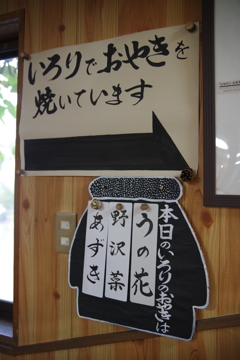 いろりでおやきを
焼いています
本日のいろりのおやきは
うの花
野沢菜
あずき